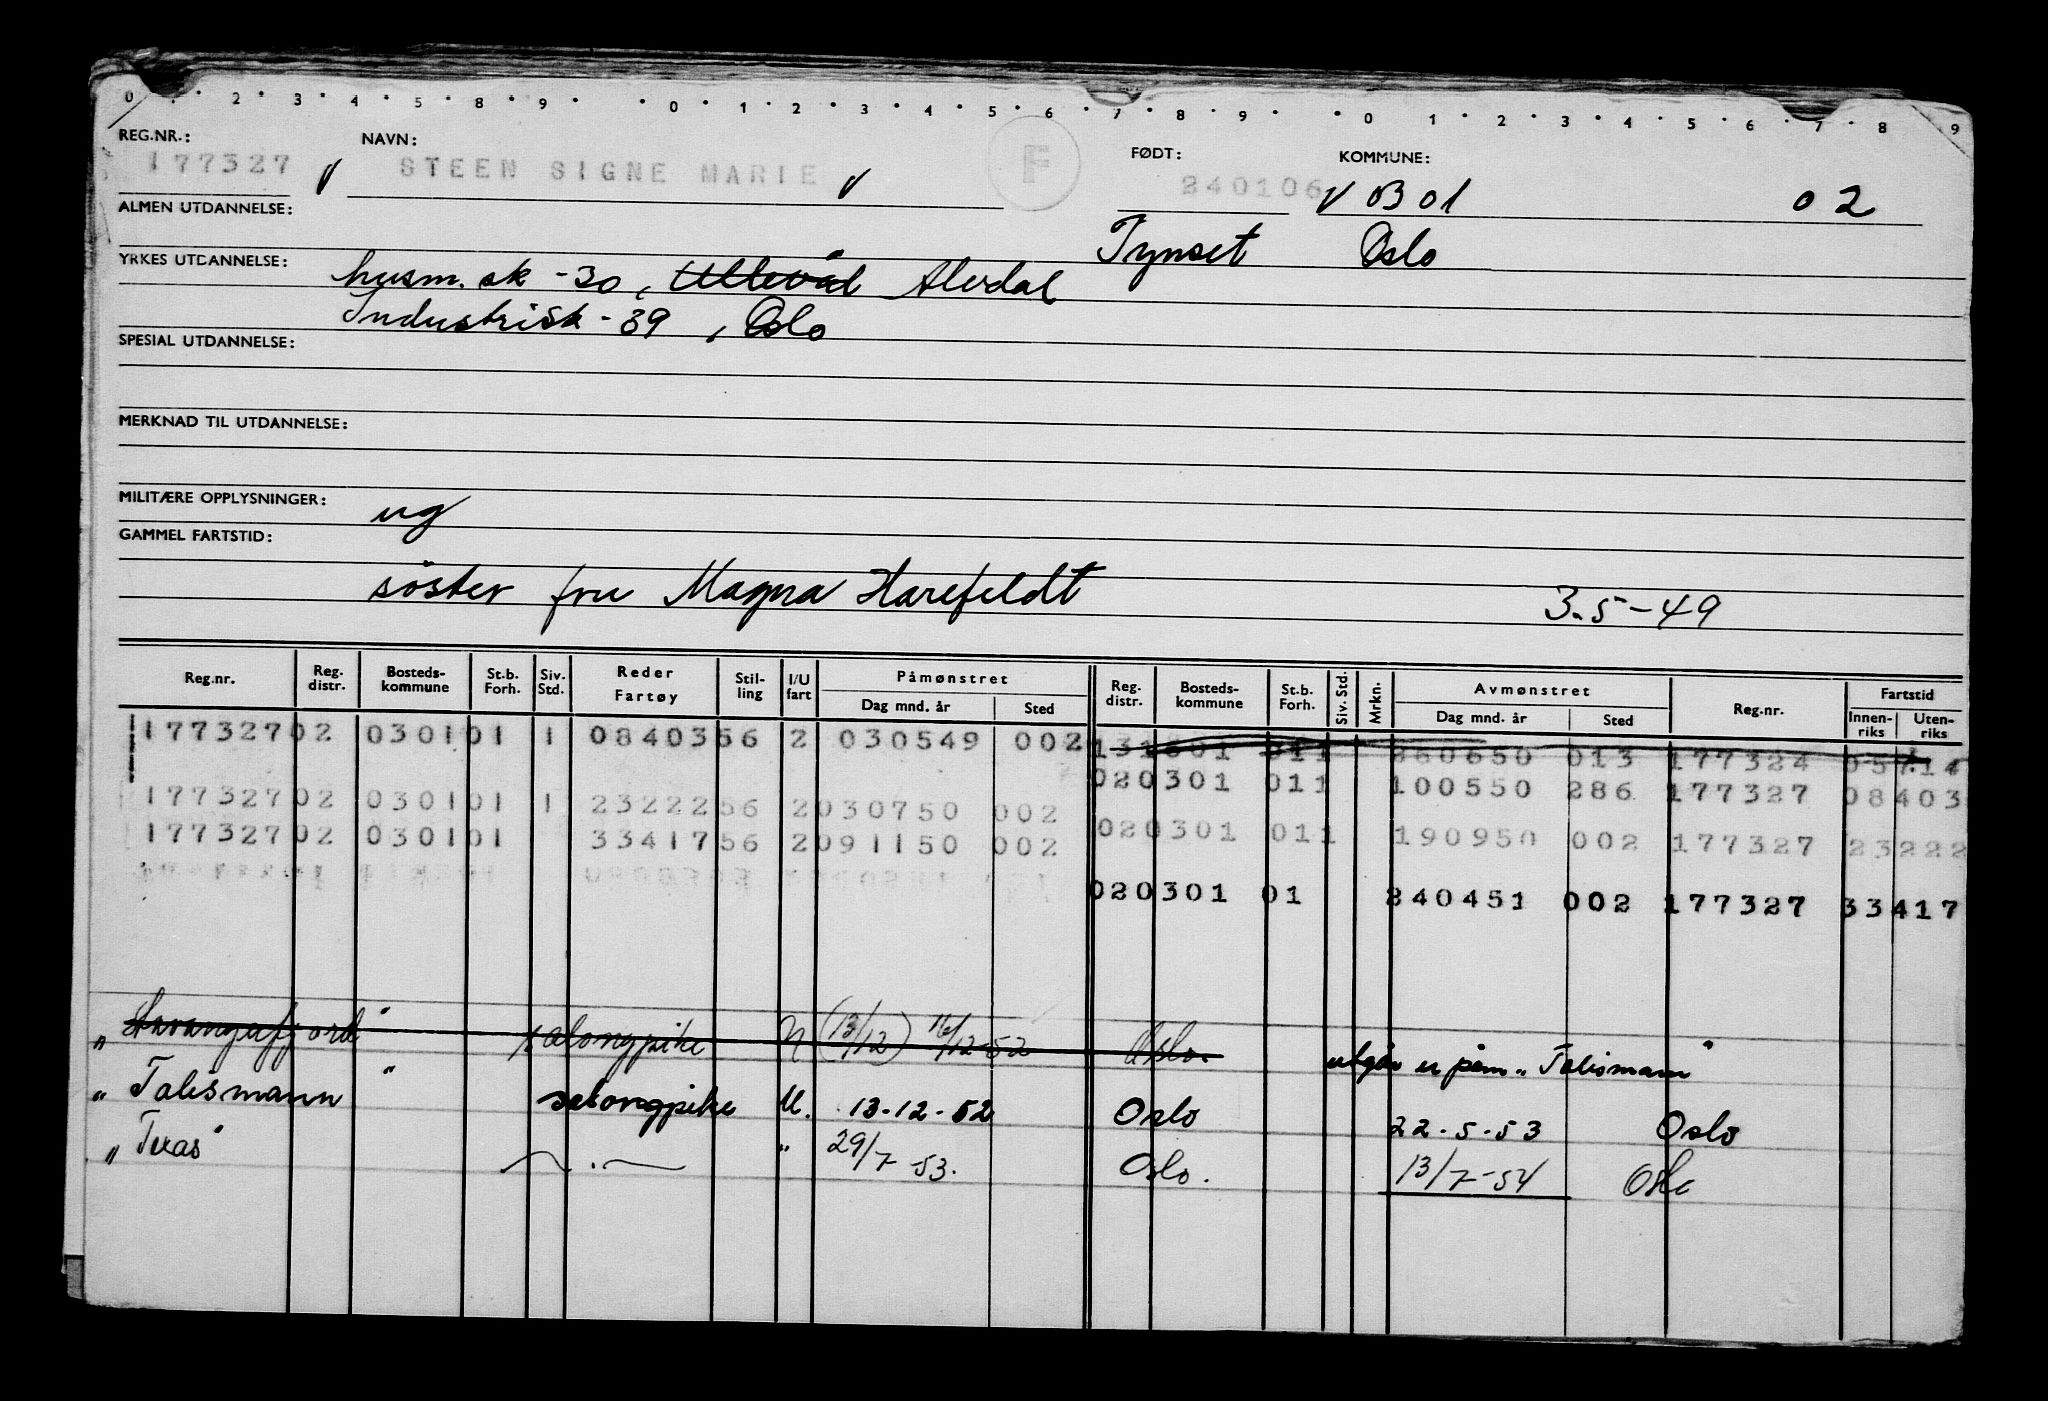 0 · · 2 · 3 · 4 · 5 · 8 · 9 · · 0 · 1 · 2 · 3 · 4 · 5 · 6 · 7 · 8 · 9 · · 0 · 1 · 2 · 3 · 4 · 5 · 6 · 7 · 8 · 9
REG.NR.: NAVN: FØDT: KOMMUNE:
177327 V STEEN SIGNE MARIE V F 240106 V B 01 02
ALMEN UTDANNELSE: Tynset Oslo
YRKES UTDANNELSE: husm.sk -30, Ullevål
Industrisk - 39, Oslo
SPESIAL UTDANNELSE:
MERKNAD TIL UTDANNELSE:
MILITÆRE OPPLYSNINGER: ug
GAMMEL FARTSTID:
söster fru Magna Harefeldt 3.5-49
Reg.nr. Reg. distr. Bosteds-kommune St.b. Forh. Siv. Std. Reder Fartøy Stil-ling I/U fart Påmønstret Dag mnd. år Sted Reg. distr. Bosteds-kommune St.b. Forh. Siv. Std. Mrkn. Avmønstret Dag mnd. år Sted Reg.nr. Fartstid Innen-riks Uten-riks
177327 02 0301 01 1 08403 56 2 030549 002 131601 011 260650 013 177324 05714
020301 011 100550 286 177327 08403
177327 02 0301 01 1 23222 56 2 030750 002
020301 011 190950 002 177327 23222
177327 02 0301 01 33417 56 2 091150 002
020301 01 240451 002 177327 33417
"Stavangerfjord" salongpike N (13/12) 16/12-52 Oslo. utgår er påm "Talismann"
"Talismann" salongpike U. 13-12-52 Oslo 22-5-53 Oslo
"Texas" — . — " 29/7-53. Oslo. 13/7-54 Oslo